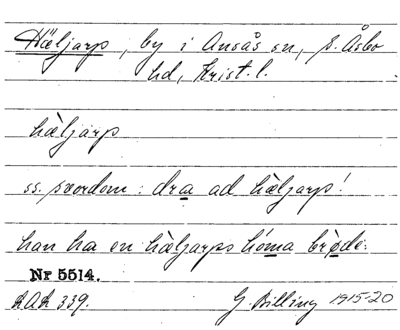 Häljarp, by i Ausås sn, S. Åsbo
hd, Krist. l.
hàljarp
ss. svordom: dra ad hàljarp!
han ha en hàljarps hóma brøde.
Nr 5514.
339.
G. Billing 1915-20